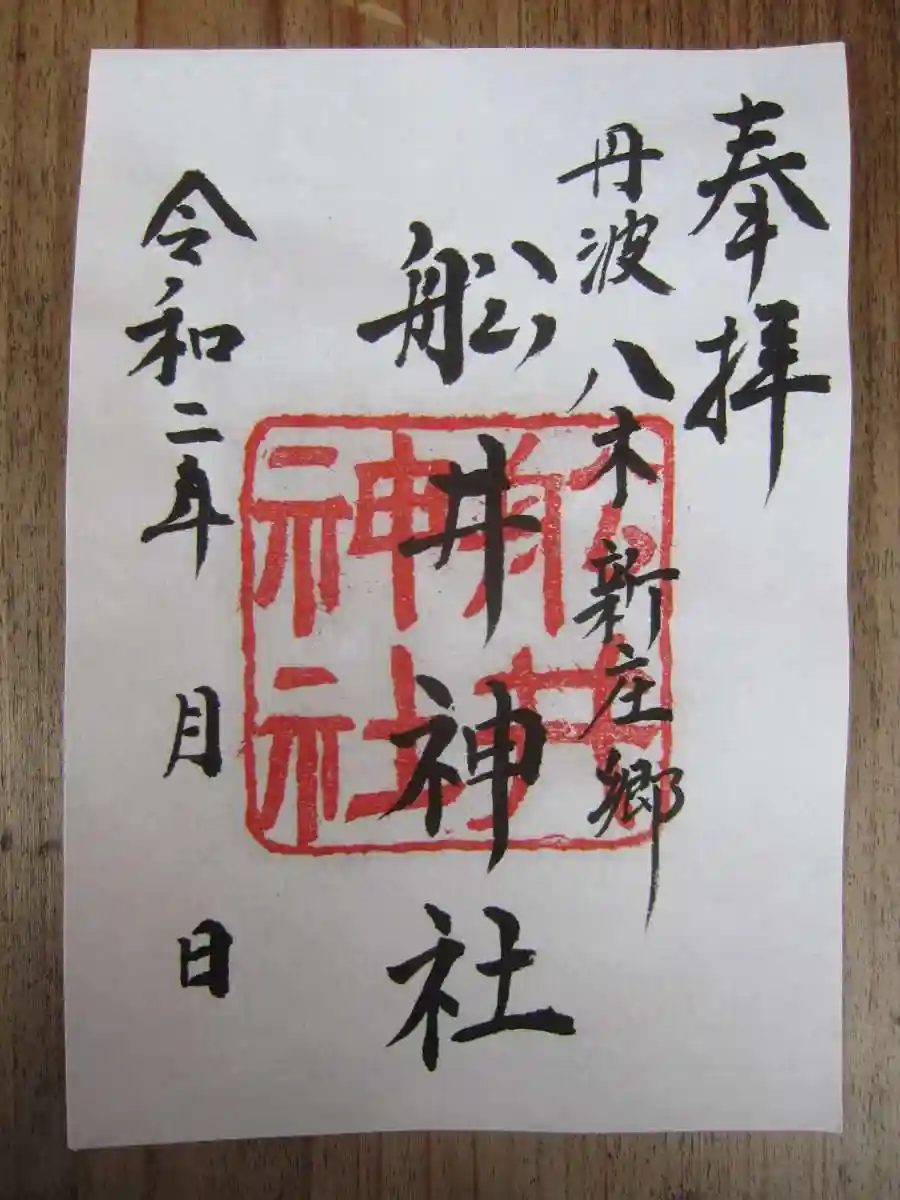 奉拝
丹波八木新庄郷
舩井神社
舩井神社
令和二年 月 日